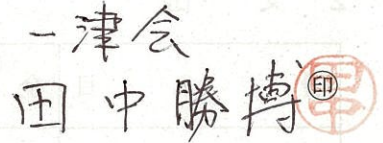 一津会
田中勝博㊞